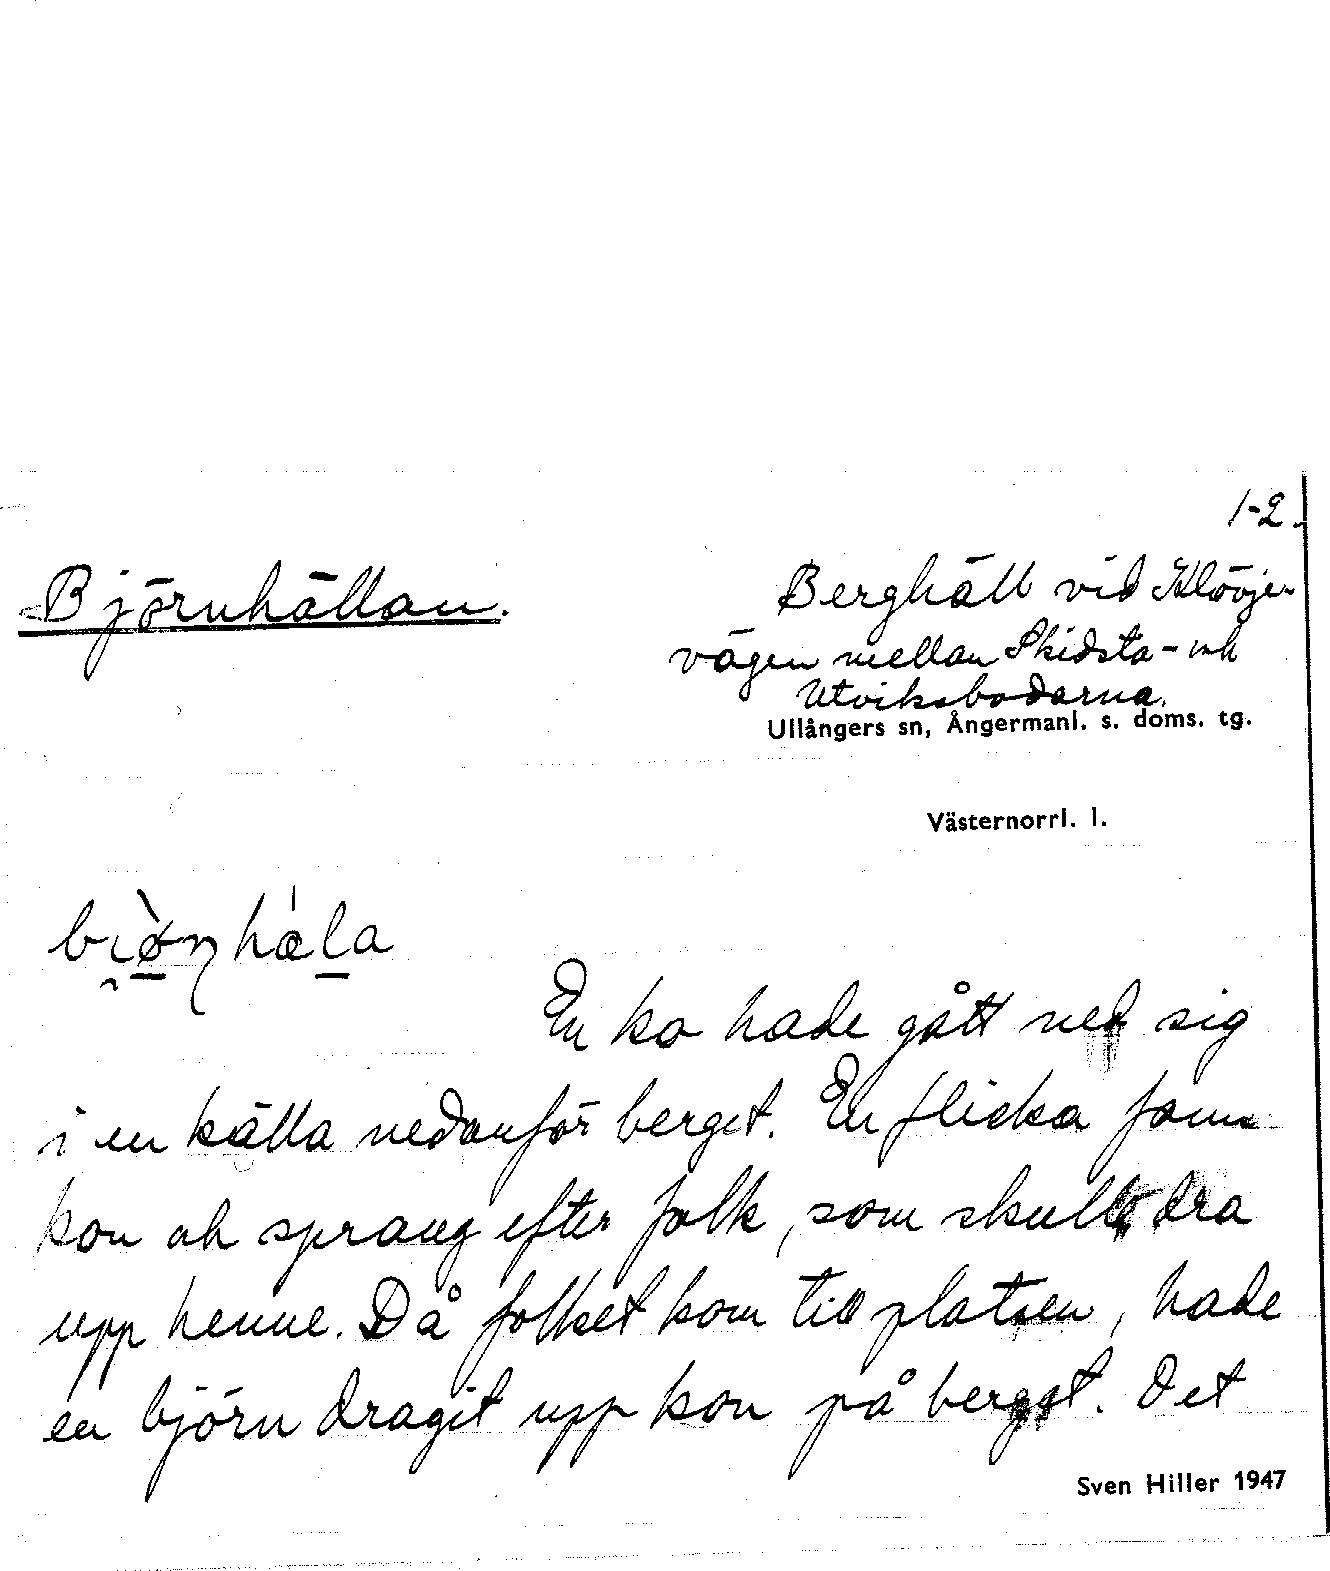 1-2.
Björnhällan.
Berghäll vid Klövje-
vägen mellan Skidsta- och
Utviksbodarna.
Ullångers sn, Ångermanl. s. doms. tg.
Västernorrl. l.
En ko hade gått ned sig
i en källa nedanför berget. En flicka fann
kon och sprang efter folk, som skulle dra
upp henne. Då folket kom till platsen, hade
en björn dragit upp kon på berget. Det
Sven Hiller 1947